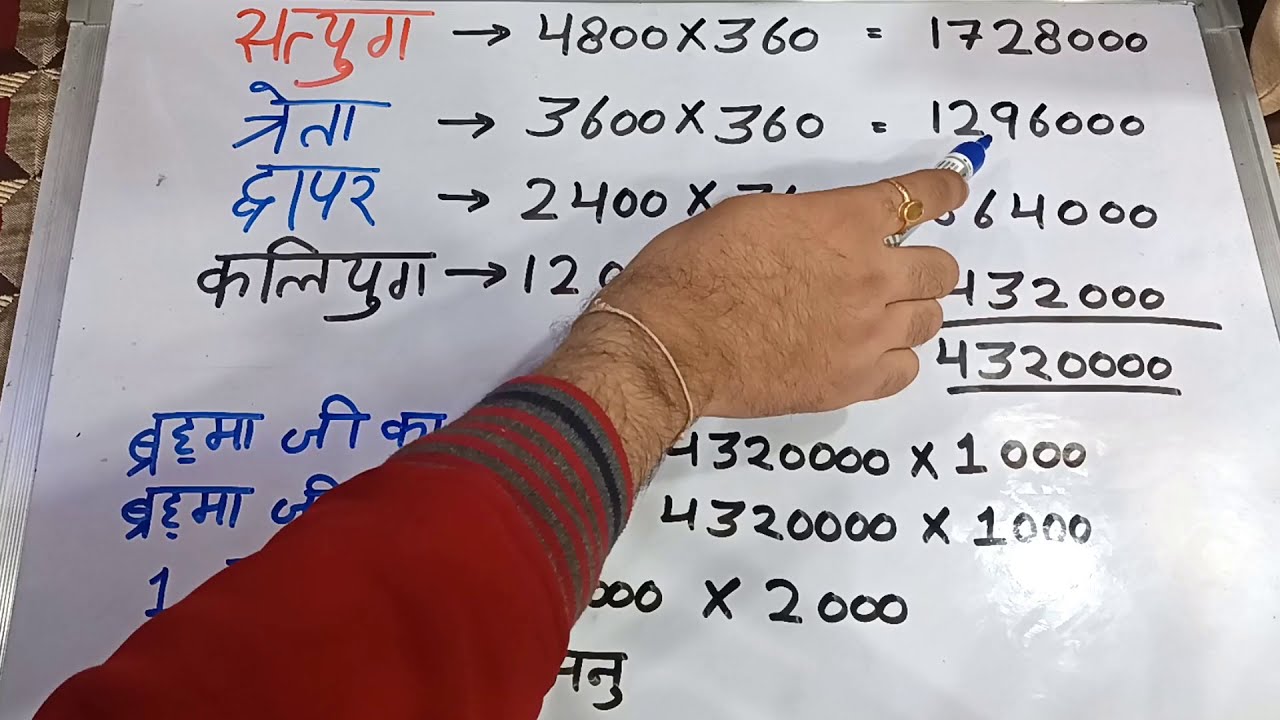 सत्युग → 4800 X 360 = 1728000
त्रेता → 3600 X 360 = 1296000
द्वापर → 2400 X 64000
कलियुग → 12 432000
4320000
ब्रह्मा जी का 4320000 X 1000
ब्रह्मा 4320000 X 1000
1 000 X 2000